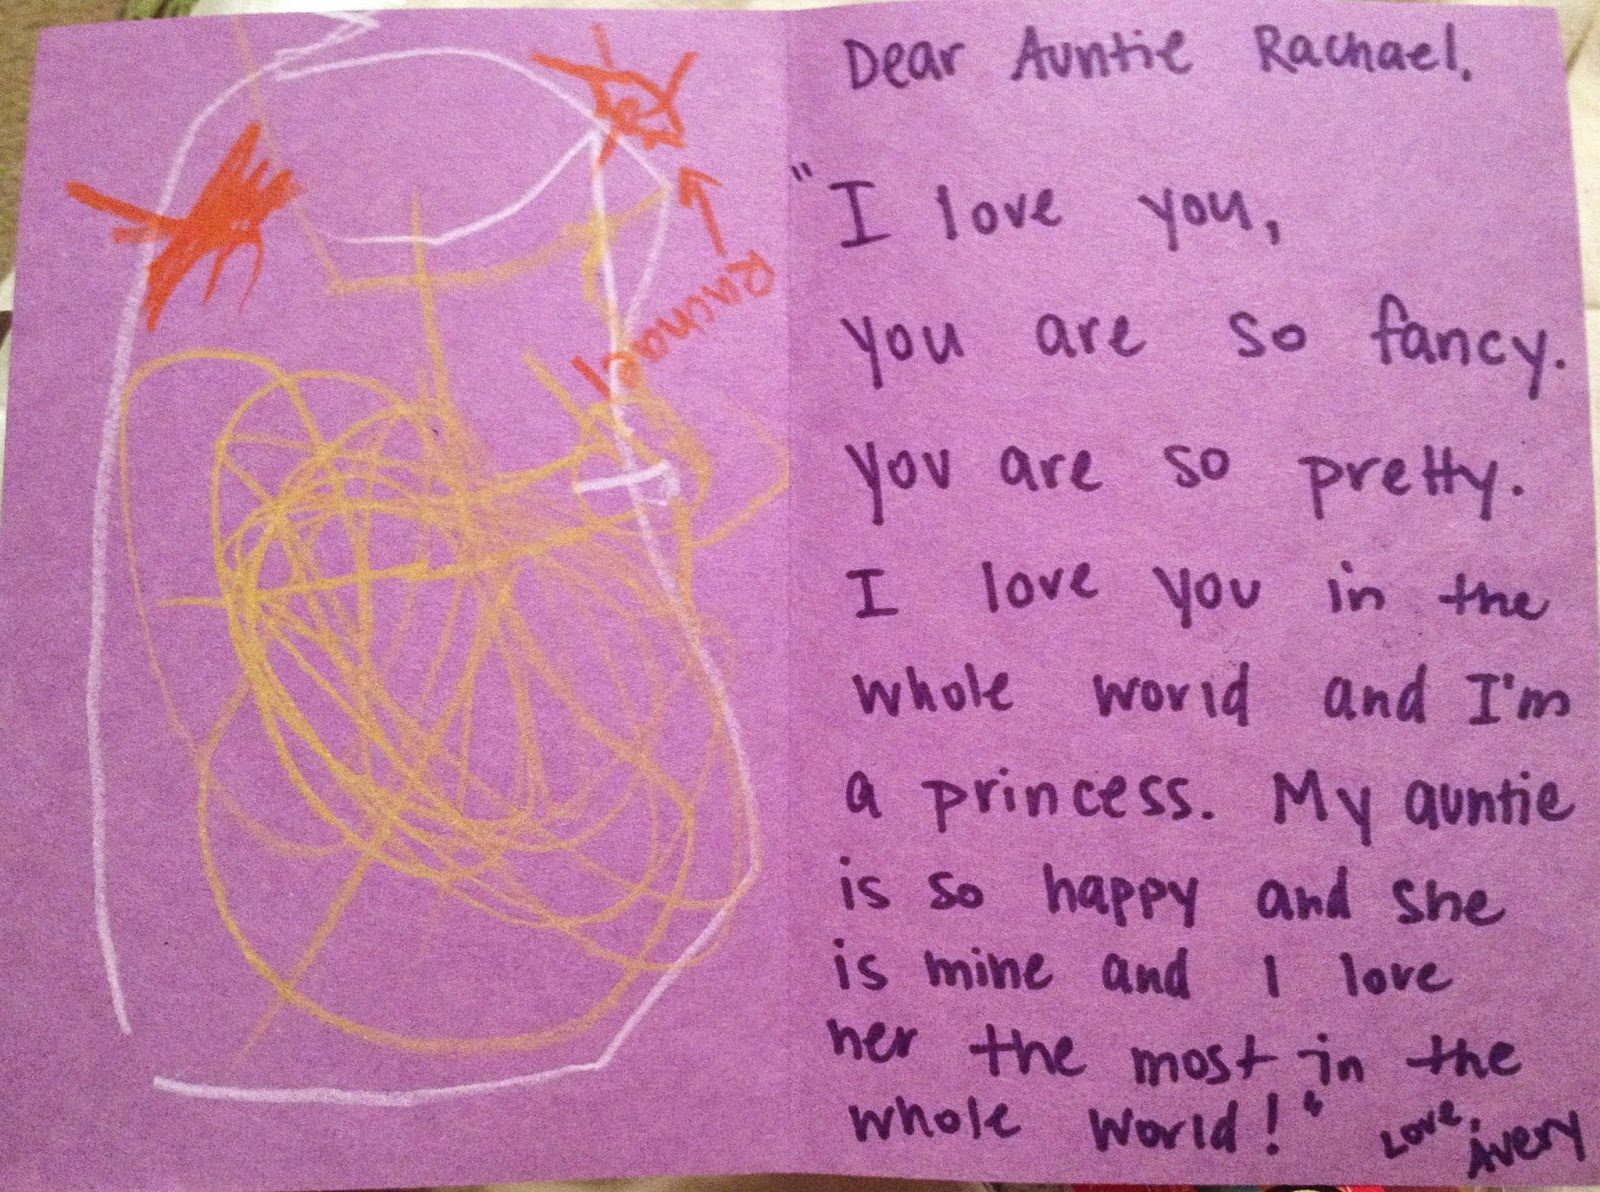 Rachael
Dear Auntie Rachael,
"I love you,
you are so fancy.
you are so pretty.
I love you in the
whole world and I'm
a princess. My auntie
is so happy and she
is mine and I love
her the most in the
whole world!" Love, Avery